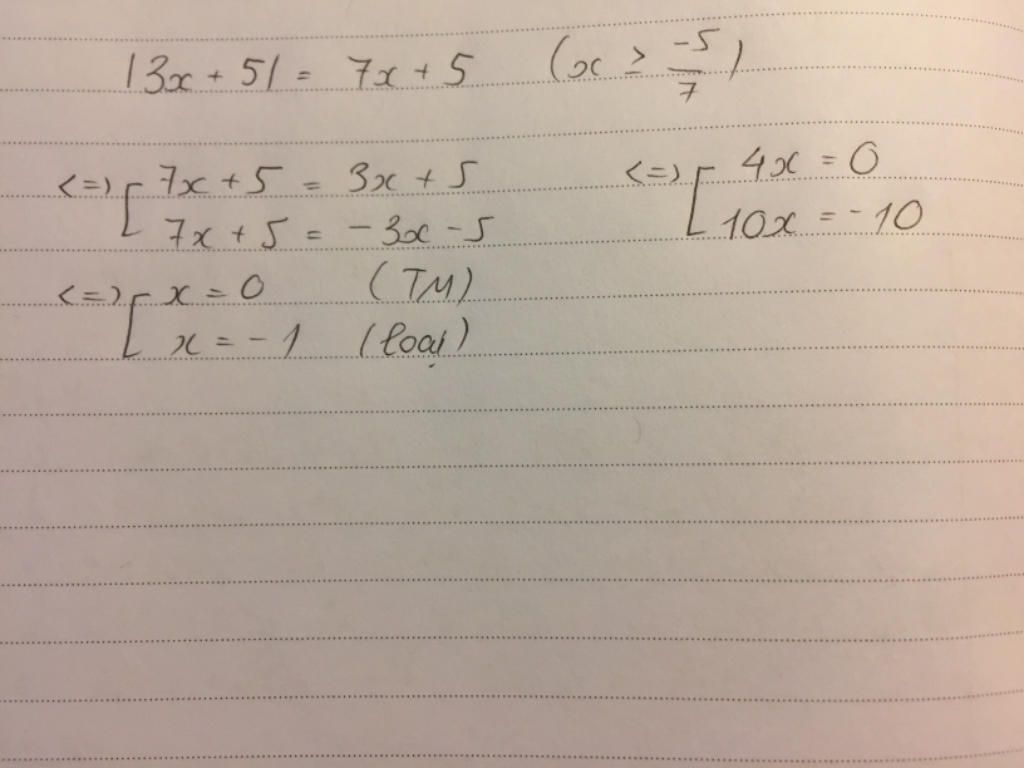 |3x + 5| = 7x + 5 (x ≥ -5/7)
<=> [ 7x + 5 = 3x + 5 <=> [ 4x = 0
7x + 5 = -3x - 5 10x = -10
<=> [ x = 0 (TM)
x = -1 (loại)